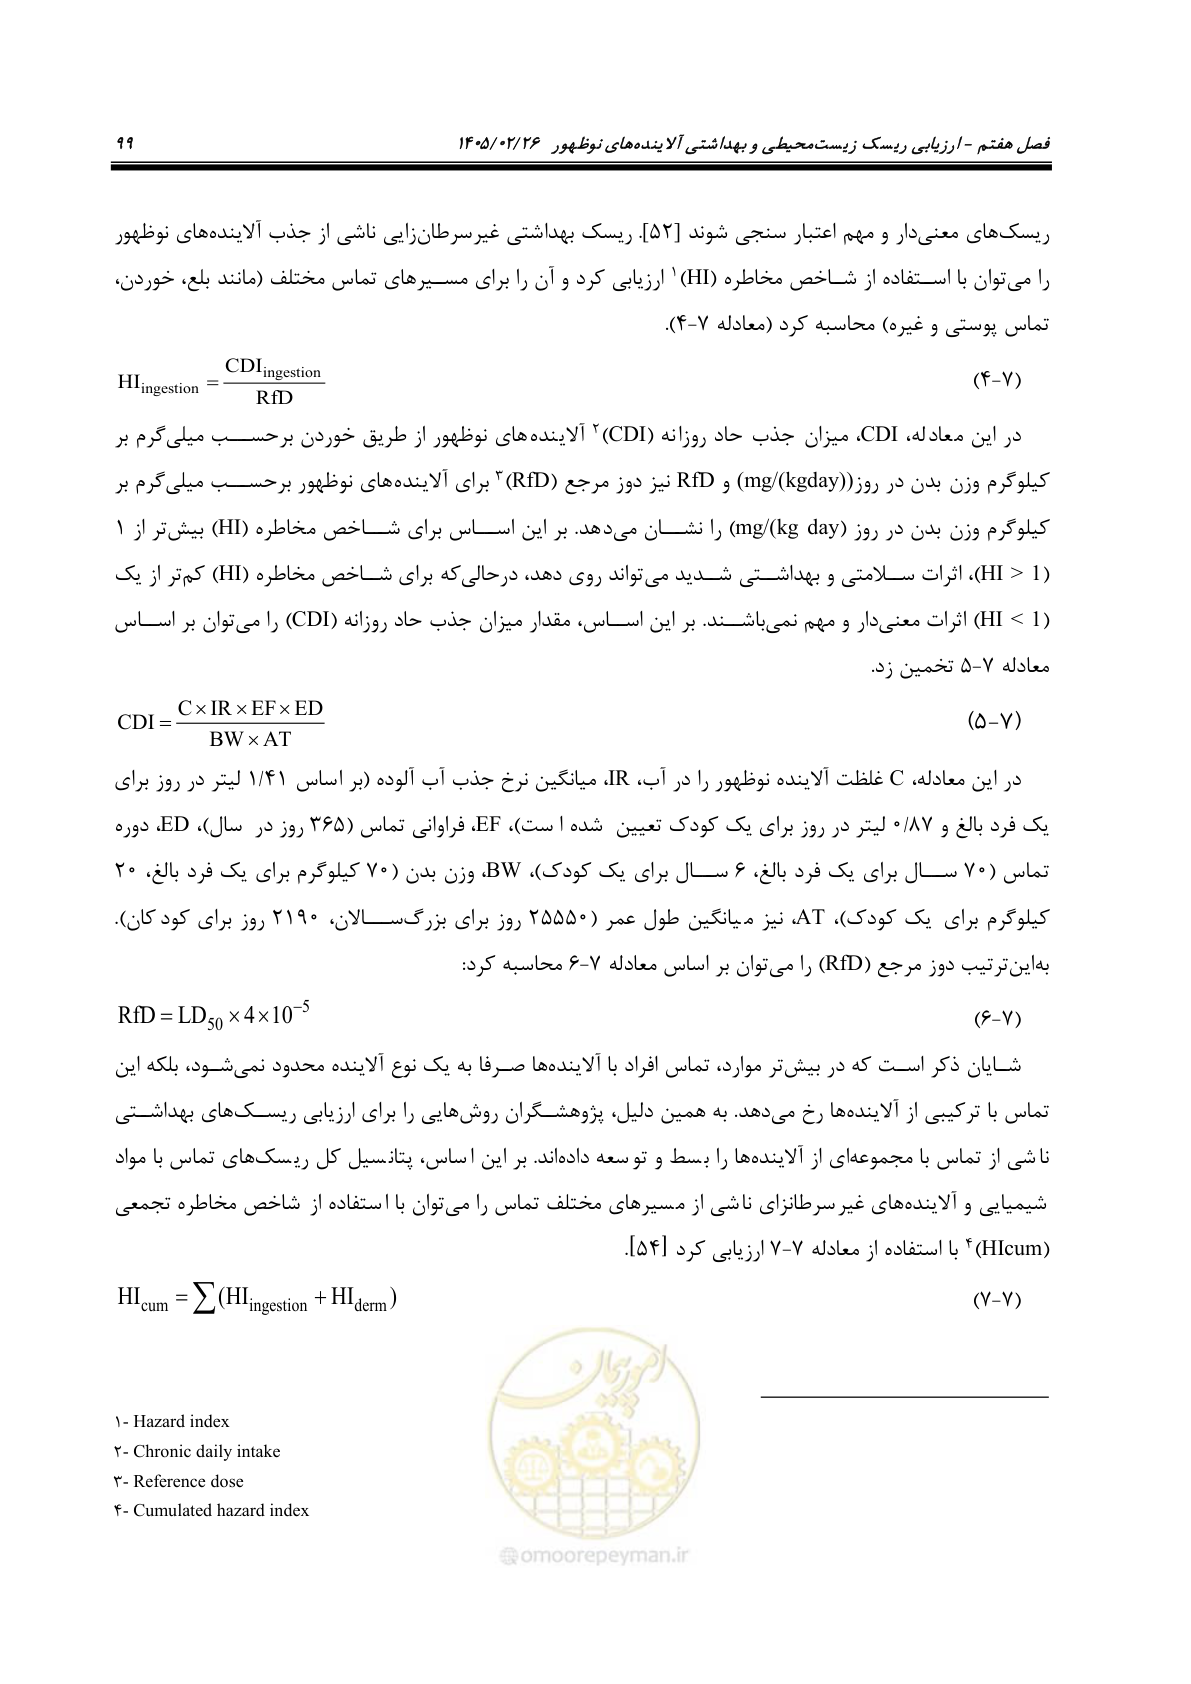 فصل هفتم - ارزیابی ریسک زیست‌محیطی و بهداشتی آلاینده‌های نوظهور ۱۴۰۵/۰۲/۲۶ ۹۹
ریسک‌های معنی‌دار و مهم اعتبار سنجی شوند [۵۲]. ریسک بهداشتی غیرسرطان‌زایی ناشی از جذب آلاینده‌های نوظهور
را می‌توان با استفاده از شاخص مخاطره (HI)۱ ارزیابی کرد و آن را برای مسیرهای تماس مختلف (مانند بلع، خوردن،
تماس پوستی و غیره) محاسبه کرد (معادله ۷-۴).
HI_ingestion = CDI_ingestion / RfD (۴-۷)
در این معادله، CDI، میزان جذب حاد روزانه (CDI)۲ آلاینده‌های نوظهور از طریق خوردن برحسب میلی‌گرم بر
کیلوگرم وزن بدن در روز((mg/(kgday) و RfD نیز دوز مرجع (RfD)۳ برای آلاینده‌های نوظهور برحسب میلی‌گرم بر
کیلوگرم وزن بدن در روز (mg/(kg day) را نشان می‌دهد. بر این اساس برای شاخص مخاطره (HI) بیش‌تر از ۱
(HI > 1)، اثرات سلامتی و بهداشتی شدید می‌تواند روی دهد، درحالی‌که برای شاخص مخاطره (HI) کم‌تر از یک
(HI < 1) اثرات معنی‌دار و مهم نمی‌باشند. بر این اساس، مقدار میزان جذب حاد روزانه (CDI) را می‌توان بر اساس
معادله ۷-۵ تخمین زد.
CDI = C × IR × EF × ED / BW × AT (۵-۷)
در این معادله، C غلظت آلاینده نوظهور را در آب، IR، میانگین نرخ جذب آب آلوده (بر اساس ۱/۴۱ لیتر در روز برای
یک فرد بالغ و ۰/۸۷ لیتر در روز برای یک کودک تعیین شده است)، EF، فراوانی تماس (۳۶۵ روز در سال)، ED، دوره
تماس (۷۰ سال برای یک فرد بالغ، ۶ سال برای یک کودک)، BW، وزن بدن (۷۰ کیلوگرم برای یک فرد بالغ، ۲۰
کیلوگرم برای یک کودک)، AT، نیز میانگین طول عمر (۲۵۵۵۰ روز برای بزرگ‌سالان، ۲۱۹۰ روز برای کودکان).
به‌این‌ترتیب دوز مرجع (RfD) را می‌توان بر اساس معادله ۷-۶ محاسبه کرد:
RfD = LD₅₀ × 4 × 10⁻⁵ (۶-۷)
شایان ذکر است که در بیش‌تر موارد، تماس افراد با آلاینده‌ها صرفا به یک نوع آلاینده محدود نمی‌شود، بلکه این
تماس با ترکیبی از آلاینده‌ها رخ می‌دهد. به همین دلیل، پژوهشگران روش‌هایی را برای ارزیابی ریسک‌های بهداشتی
ناشی از تماس با مجموعه‌ای از آلاینده‌ها را بسط و توسعه داده‌اند. بر این اساس، پتانسیل کل ریسک‌های تماس با مواد
شیمیایی و آلاینده‌های غیرسرطانزای ناشی از مسیرهای مختلف تماس را می‌توان با استفاده از شاخص مخاطره تجمعی
(HIcum)۴ با استفاده از معادله ۷-۷ ارزیابی کرد [۵۴].
HI_cum = ∑(HI_ingestion + HI_derm) (۷-۷)
۱- Hazard index
۲- Chronic daily intake
۳- Reference dose
۴- Cumulated hazard index
امور پیمان
@omoorepeyman.ir